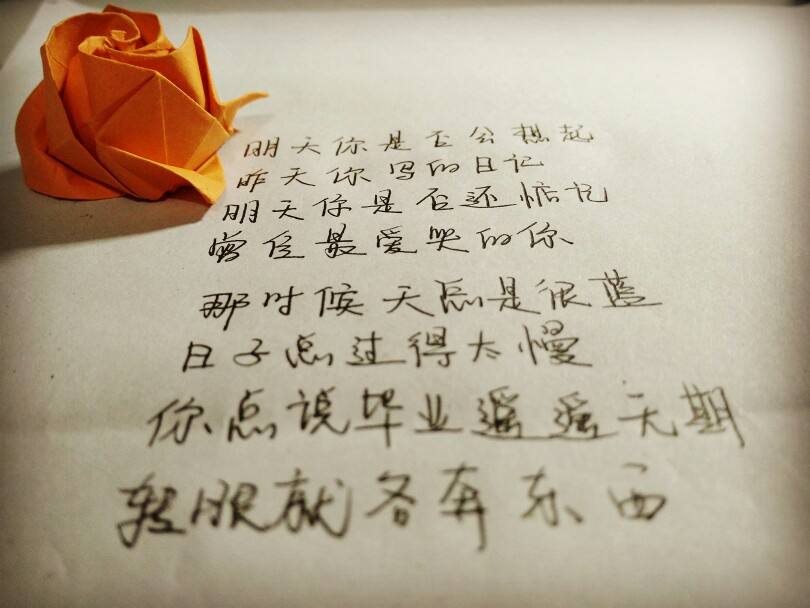 明天你是否会想起
昨天你写的日记
明天你是否还惦记
曾经最爱哭的你
那时候天总是很蓝
日子总过得太慢
你总说毕业遥遥无期
转眼就各奔东西